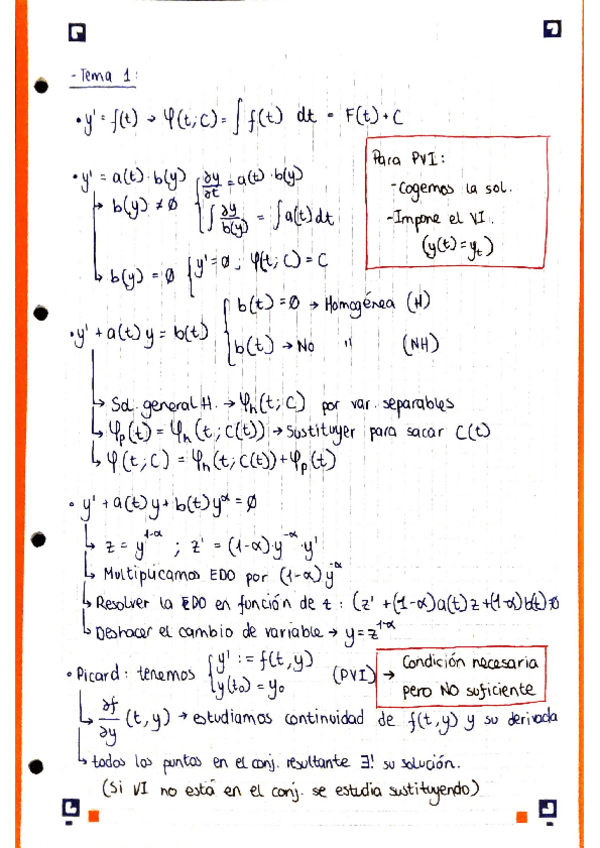 - Tema 1:
• y' = f(t) → φ(t;C) = ∫ f(t) dt = F(t) + C
Para PVI:
- Cogemos la sol.
- Impone el VI.
(y(t) = y_t)
• y' = a(t) · b(y)
b(y) ≠ Ø { ∂y/∂t = a(t) · b(y)
∫ ∂y/b(y) = ∫ a(t) dt
b(y) = Ø { y' = Ø ; φ(t;C) = C
• y' + a(t) y = b(t) { b(t) = Ø → Homogénea (H)
b(t) → No " (NH)
Sol. general H. → φ_h(t;C) por var. separables
φ_p(t) = φ_h(t;C(t)) → Sustituyer para sacar C(t)
φ(t,C) = φ_h(t;C(t)) + φ_p(t)
• y' + a(t) y + b(t) y^α = Ø
z = y^{1-α} ; z' = (1-α) · y^{-α} · y'
Multiplicamos EDO por (1-α) y^{-α}
Resolver la EDO en función de z : (z' + (1-α) a(t) z + (1-α) b(t) = Ø
Deshacer el cambio de variable → y = z^{1-α}
• Picard : tenemos { y' := f(t,y)
y(t₀) = y₀ (PVI) →
Condición necesaria
pero NO suficiente
∂f/∂y (t,y) → estudiamos continuidad de f(t,y) y su derivada
todos los puntos en el conj. resultante ∃! su solución.
(Si VI no está en el conj. se estudia sustituyendo)